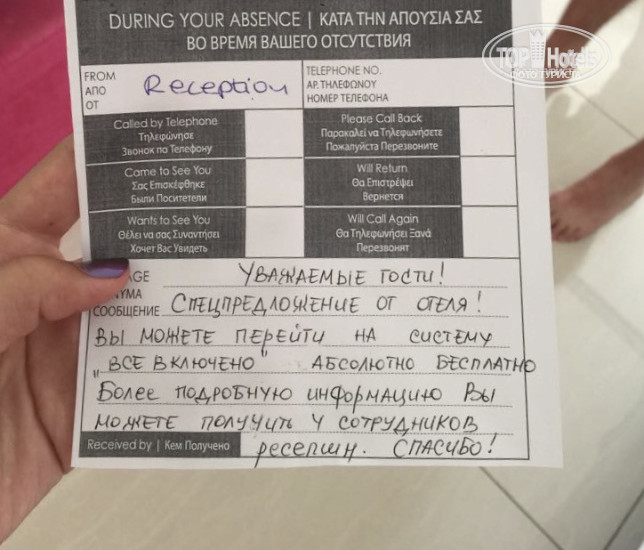 DURING YOUR ABSENCE | ΚΑΤΑ ΤΗΝ ΑΠΟΥΣΙΑ ΣΑΣ
ВО ВРЕМЯ ВАШЕГО ОТСУТСТВИЯ
TOP Hotels
ФОТО ТУРИСТА
FROM
ΑΠΟ
ОТ
Reception
TELEPHONE NO.
ΑΡ. ΤΗΛΕΦΩΝΟΥ
НОМЕР ТЕЛЕФОНА
Called by Telephone
Τηλεφώνησε
Звонок по Телефону
Please Call Back
Παρακαλεί να Τηλεφωνήσετε
Пожалуйста Перезвоните
Came to See You
Σας Επισκέφθηκε
Были Посетители
Will Return
Θα Επιστρέψει
Вернется
Wants to See You
Θέλει να σας Συναντήσει
Хочет Вас Увидеть
Will Call Again
Θα Τηλεφωνήσει Ξανά
Перезвонят
AGE
ΥΜΑ
СООБЩЕНИЕ
УВАЖАЕМЫЕ ГОСТИ!
СПЕЦПРЕДЛОЖЕНИЕ ОТ ОТЕЛЯ!
ВЫ МОЖЕТЕ ПЕРЕЙТИ НА СИСТЕМУ
„ВСЕ ВКЛЮЧЕНО" АБСОЛЮТНО БЕСПЛАТНО
БОЛЕЕ ПОДРОБНУЮ ИНФОРМАЦИЮ ВЫ
МОЖЕТЕ ПОЛУЧИТЬ У СОТРУДНИКОВ
Received by | Кем Получено
РЕСЕПШН. СПАСИБО!